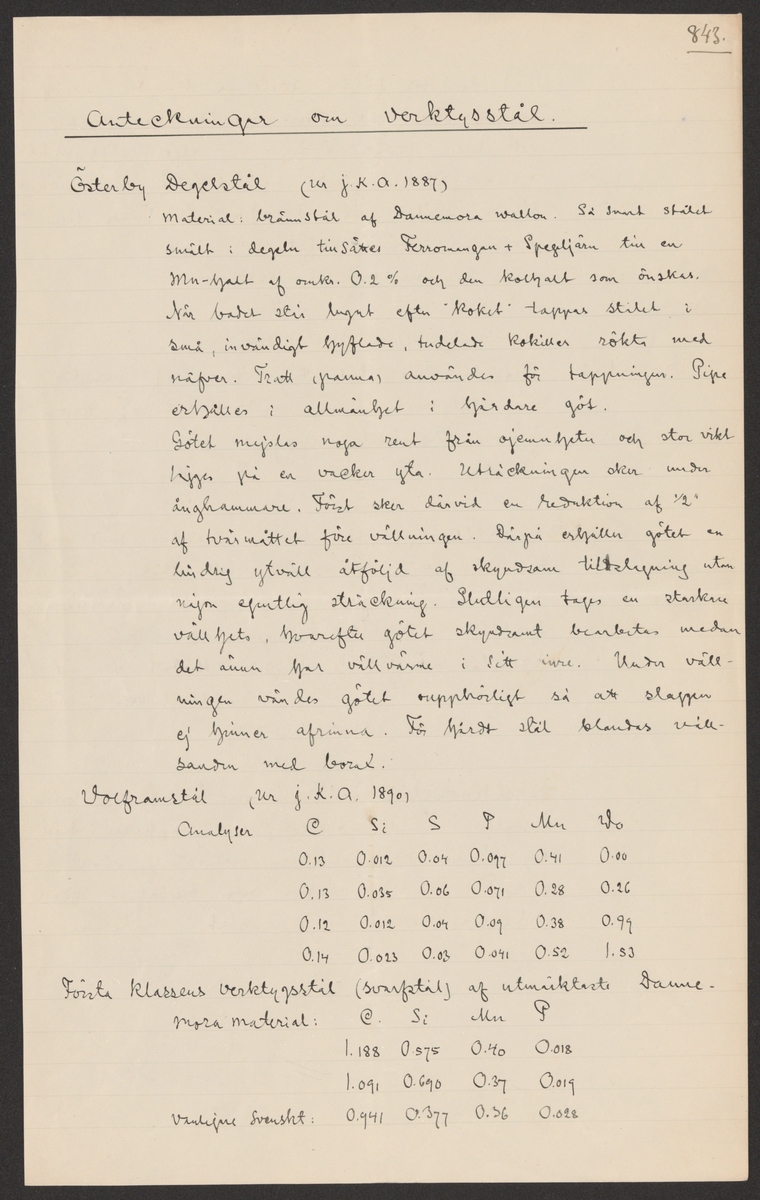 843.
Anteckningar om verktygsstål.
Österby Degelstål (ur J.K.A. 1887)
Material: brännstål af Dannemora wallon. Så snart stålet
smält i degeln tillsättes Ferromangan + Spegeljärn till en
Mn-halt af omkr. 0.2 % och den kolhalt som önskas.
När badet står lugnt efter "koket" tappas stålet i
små, invändigt hyflade, tudelade kokiller rökta med
näfver. Tratt (panna) användes för tappningen. Pipe
erhålles i allmänhet i hårdare göt.
Götet mejslas noga rent från ojemnheter och stor vikt
lägges på en vacker yta. Uträckningen sker under
ånghammare. Först sker därvid en reduktion af 1/2"
af tvärmåttet före vällningen. Därpå erhåller götet en
lindrig ytväll åtföljd af skyndsam tillslagning utan
någon egentlig sträckning. Slutligen tages en starkare
vällhets, hvarefter götet skyndsamt bearbetas medan
det ännu har vällvärme i sitt inre. Under väll-
ningen vändes götet oupphörligt så att slaggen
ej hinner afrinna. För hårdt stål blandas väll-
sanden med borax.
Wolframstål (ur J.K.A. 1890)
Analyser C Si S P Mn Wo
0.13 0.012 0.04 0.097 0.41 0.00
0.13 0.035 0.06 0.071 0.28 0.26
0.12 0.012 0.04 0.09 0.38 0.99
0.14 0.023 0.03 0.041 0.52 1.53
Första klassens verktygsstål (svarfstål) af utmärktaste Danne-
mora material: C. Si Mn P
1.188 0.575 0.40 0.018
1.091 0.690 0.37 0.019
Vanligare Svenskt: 0.941 0.377 0.36 0.028